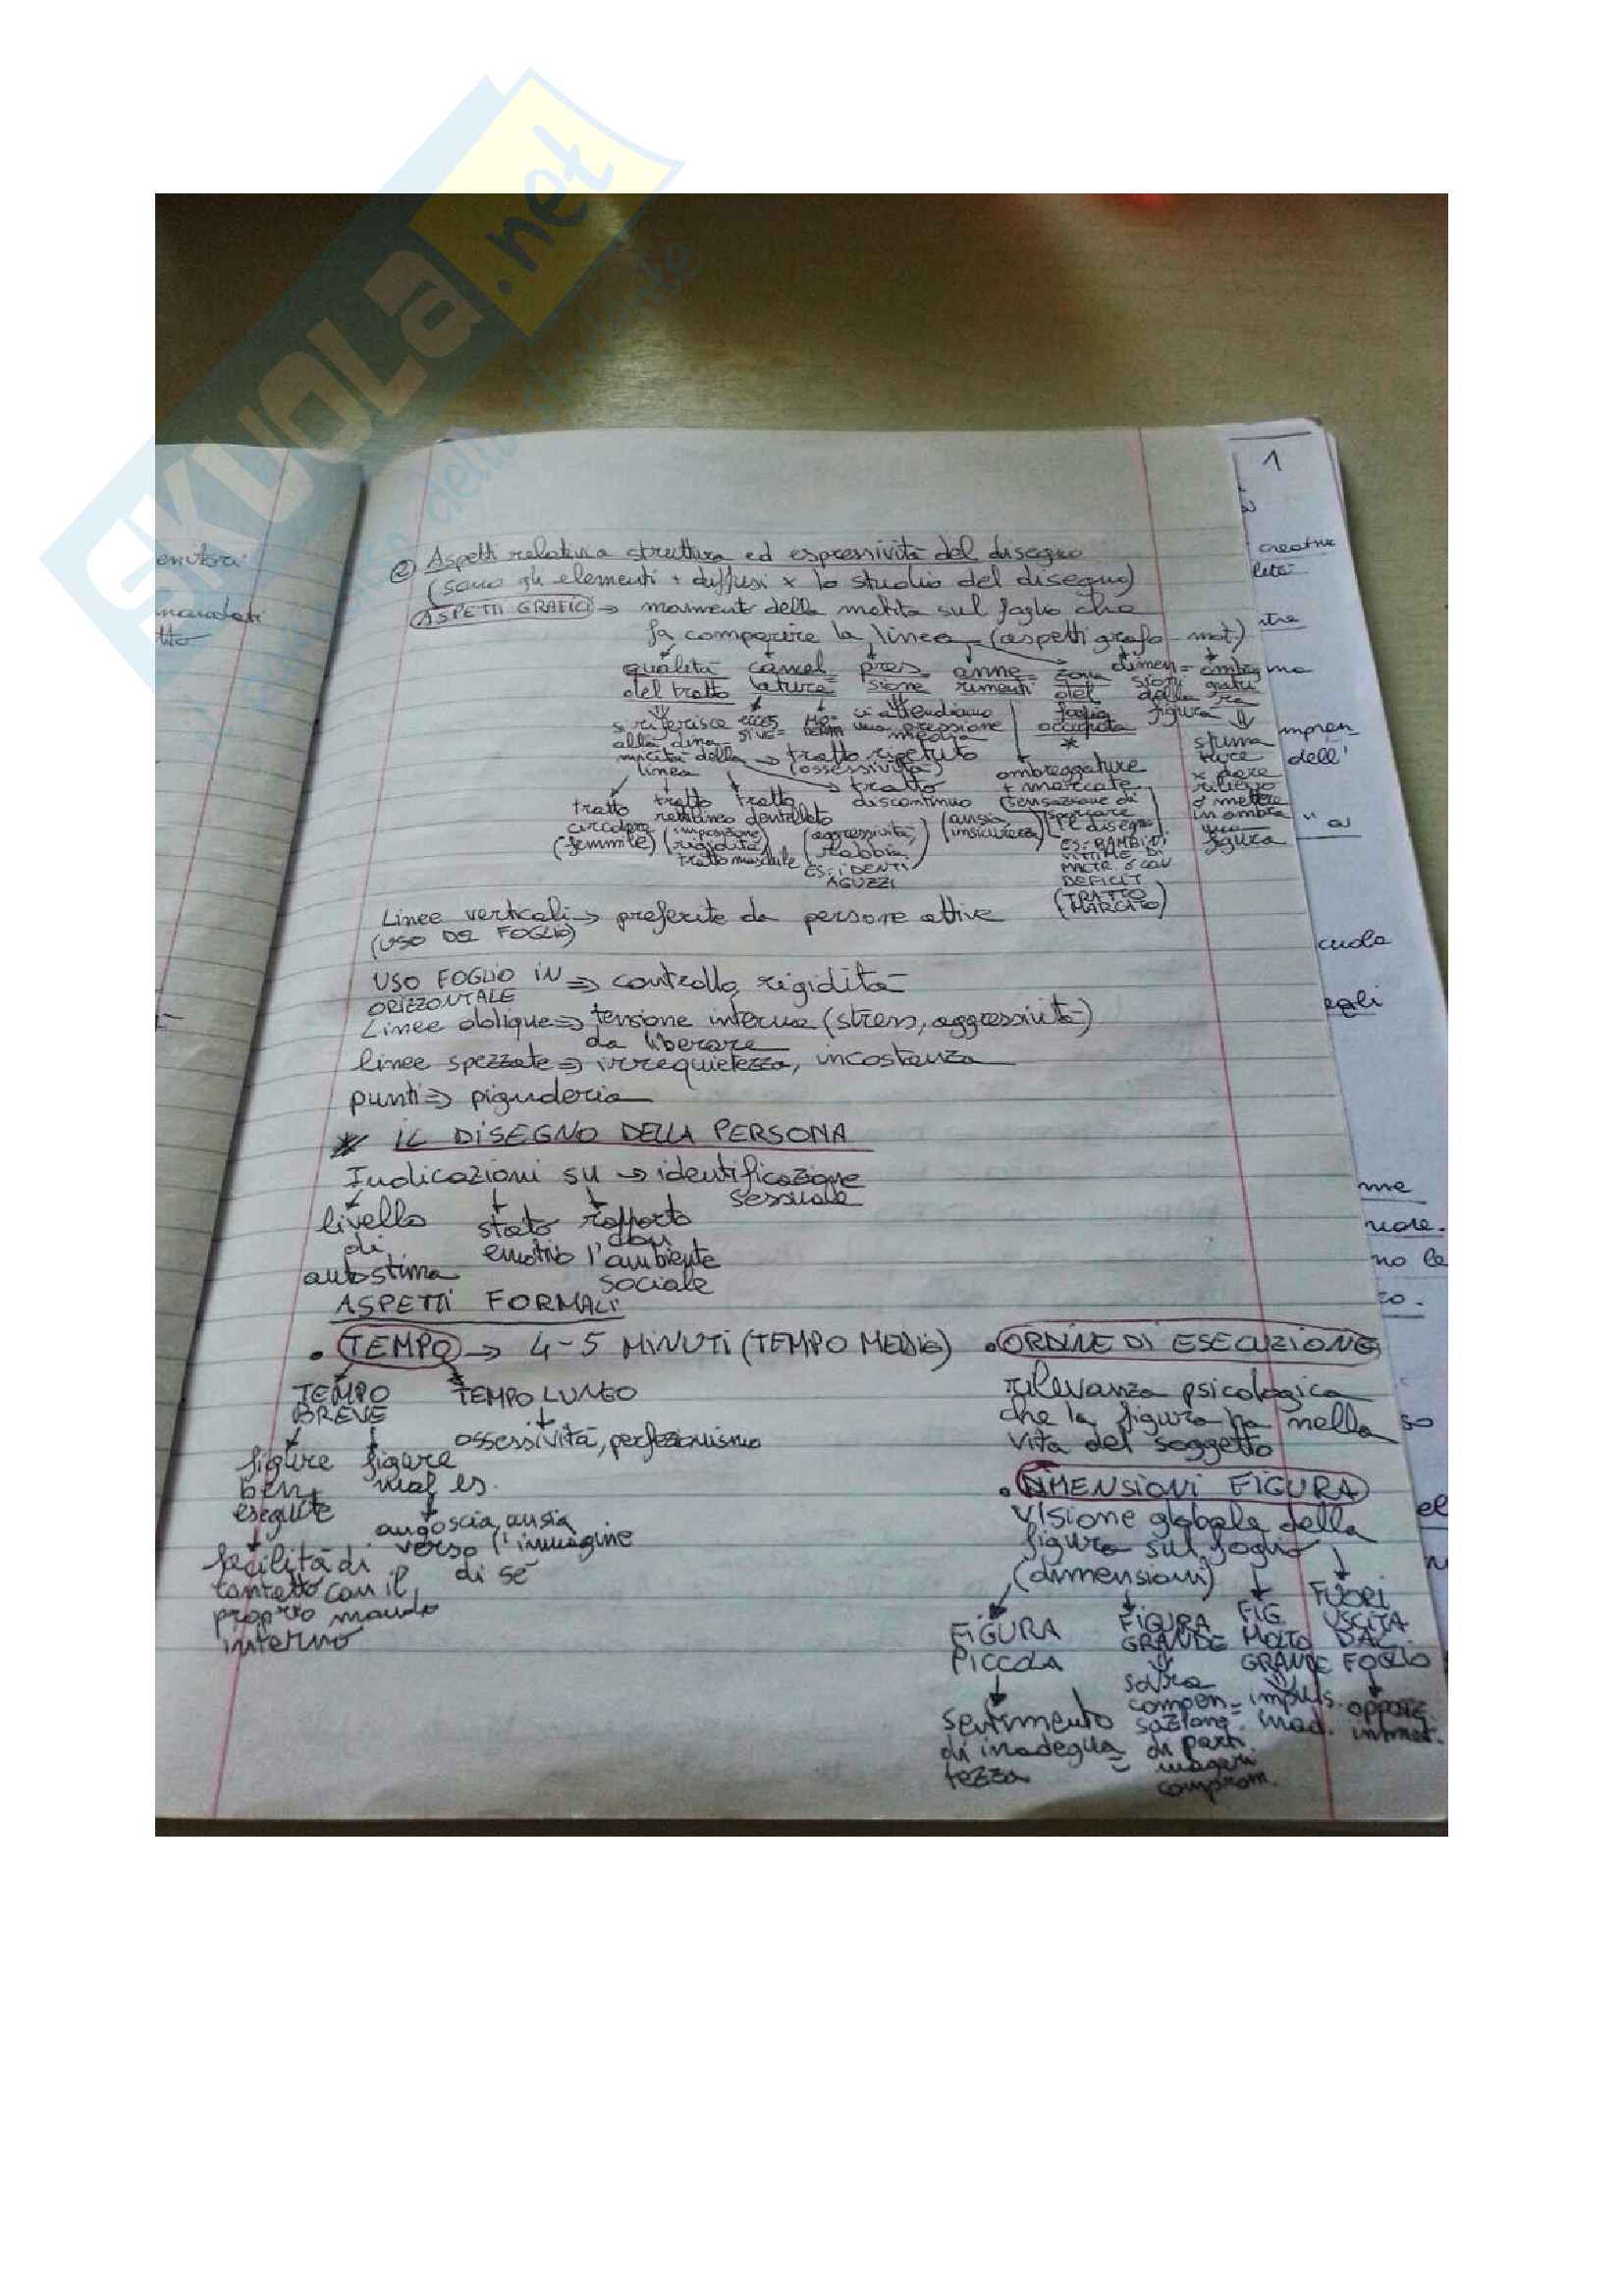 SKUOLA.net
e) Aspetti relativi a struttura ed espressività del disegno
(sono gli elementi + diffusi x lo studio del disegno)
ASPETTI GRAFICI → movimento della matita sul foglio che
fa comparire la linea (aspetti grafo-mot.)
qualità del tratto
cancel= lature
pres= sione
anne= rimenti
zona del foglio occupata *
dimen= sioni della figura
ombreg= giatu= ra
si riferisce alla dina= micità della linea
ecces= sive=
ci attendiamo una pressione media
→ tratto ripetuto (ossessività)
tratto discontinuo (ansia, insicurezza)
tratto circolare (femminile)
tratto rettilineo (imposizione, rigidità) tratto maschile
tratto dentellato (aggressività, rabbia) ES: i DENTI AGUZZI
ombreggiature + marcate (sensazione di sporcare il disegno)
ES: BAMBINI VITTIME DI MALTR. O CON DEFICIT
(TRATTO MARCATO)
sfuma ture x dare rilievo o mettere in ombra una figura
Linee verticali → preferite da persone attive
(USO DEL FOGLIO)
USO FOGLIO IN ORIZZONTALE ⇒ controllo, rigidità
Linee oblique ⇒ tensione interna (stress, aggressività)
da liberare
linee spezzate ⇒ irrequietezza, incostanza
punti ⇒ pignoleria
* IL DISEGNO DELLA PERSONA
Indicazioni su → identificazione sessuale
livello di autostima
stato emotivo
rapporto con l'ambiente sociale
ASPETTI FORMALI
• TEMPO → 4-5 MINUTI (TEMPO MEDIO)
TEMPO BREVE
TEMPO LUNGO
ossessività, perfezionismo
figure ben eseguite
figure mal es.
facilità di contatto con il proprio mondo interno
angoscia, ansia verso l'immagine di sé
• ORDINE DI ESECUZIONE
rilevanza psicologica
che la figura ha nella
vita del soggetto
• DIMENSIONI FIGURA
visione globale della
figura sul foglio
(dimensioni)
FIGURA PICCOLA
FIGURA GRANDE
FIG. MOLTO GRANDE
FUORI USCITA DAL FOGLIO
sentimento di inadegua= tezza
sovra compen= sazione di parti magari comprom.
impuls. inad.
1